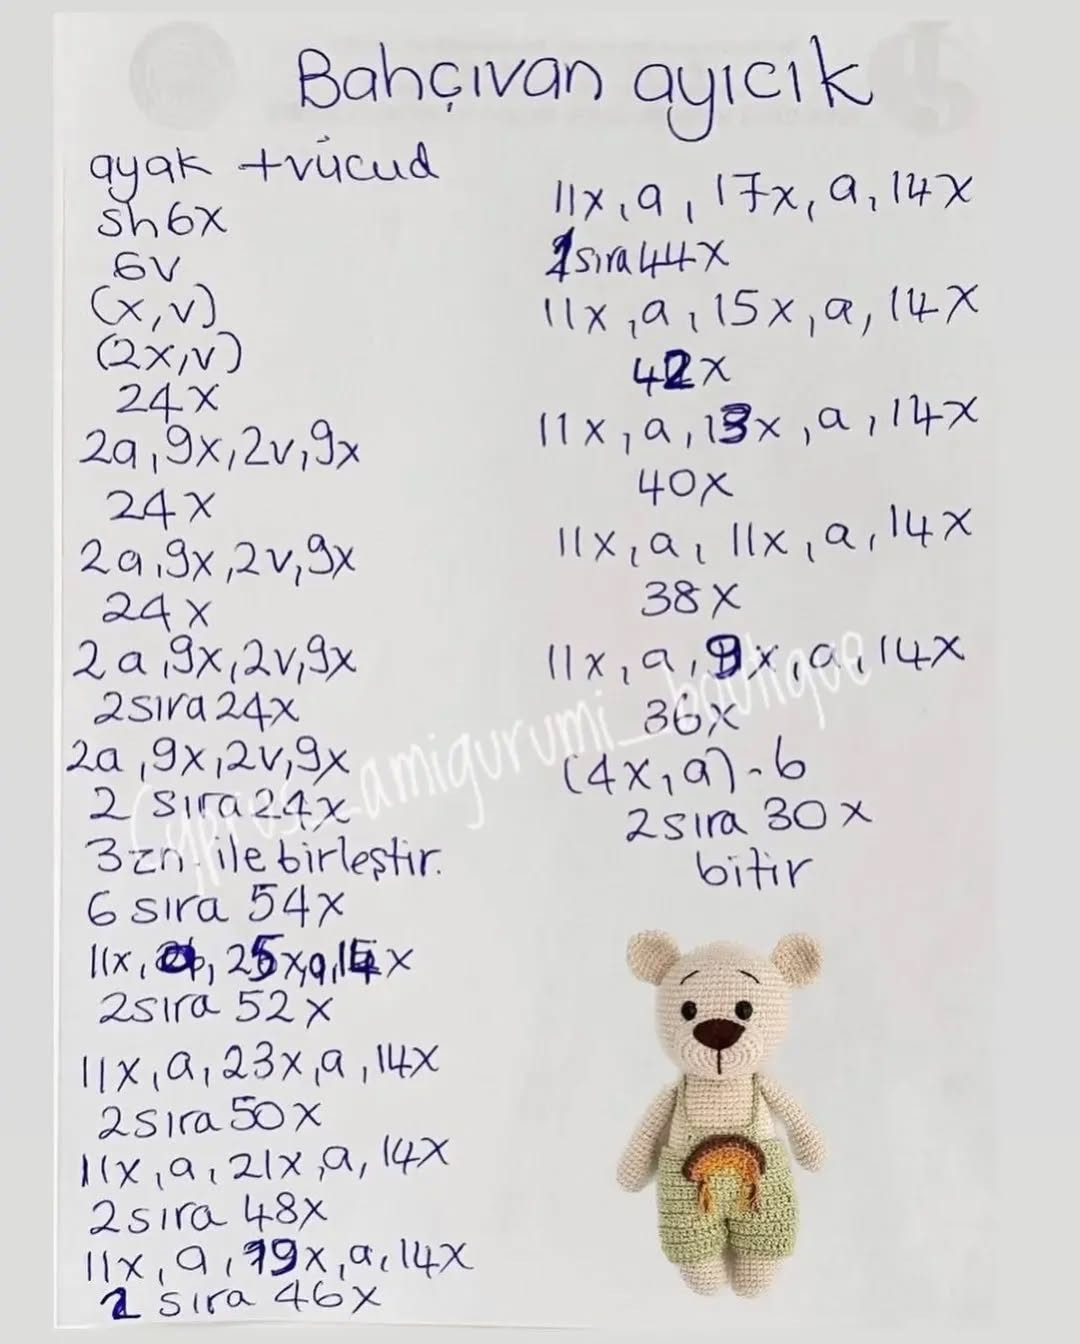 Bahçıvan ayıcık
ayak +vücud
sh6x
6v
(x,v)
(2x,v)
24x
2a,9x,2v,9x
24x
2a,9x,2v,9x
24x
2a,9x,2v,9x
2sıra24x
2a,9x,2v,9x
2 sıra24x
3zn.ile birleştir.
6 sıra 54x
11x, 25x,a,x
2sıra 52x
11x,a,23x,a,14x
2sıra50x
11x,a,21x,a,14x
2sıra 48x
11x,a,19x,a,14x
sıra 46x
11x,a,17x,a,14x
sıra44x
11x,a,15x,a,14x
42x
11x,a,13x,a,14x
40x
11x,a,11x,a,14x
38x
11x,a,9x,a,14x
36x
(4x,a)-6
2sıra 30x
bitir
Cyprus_amigurumi_boutique